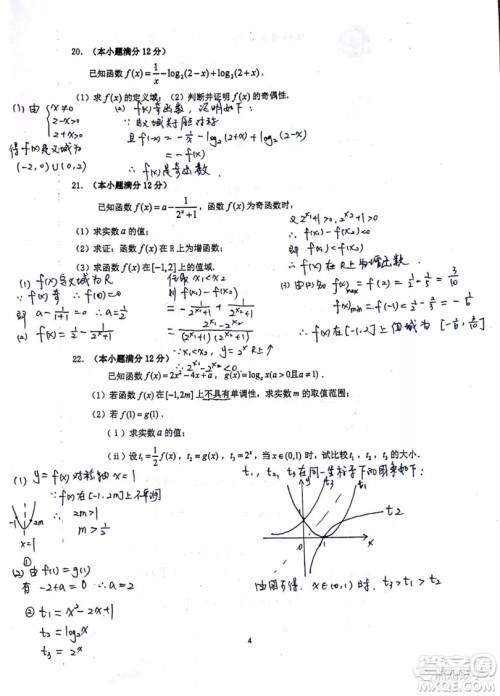 20. (本小题满分 12 分)
已知函数 f(x) = 1/x − log₂(2−x) + log₂(2+x).
(1) 求 f(x) 的定义域; (2) 判断并证明 f(x) 的奇偶性.
(1) 由 { x≠0
2−x>0
2+x>0
得f(x)定义域为
(−2,0)∪(0,2)
(2) f(x)奇函数, 证明如下:
∵定义域关于原点对称
且 f(−x) = −1/x − log₂(2+x) + log₂(2−x)
= −f(x)
∴ f(x)是奇函数
21. (本小题满分 12 分)
已知函数 f(x) = a − 1/(2ˣ+1), 函数 f(x) 为奇函数时,
(1) 求实数 a 的值;
(2) 求证: 函数 f(x) 在 R 上为增函数;
(3) 求函数 f(x) 在 [−1,2] 上的值域.
(1) f(x)定义域为R
∵ f(x)奇 ∴ f(0)=0
即 a − 1/(1+1) = 0 ∴ a = 1/2
(2) ∵ f(x) = 1/2 − 1/(2ˣ+1)
任取 x₁<x₂
则 f(x₁)−f(x₂)
= 1/(2^x₂+1) − 1/(2^x₁+1)
= (2^x₁−2^x₂)/((2^x₁+1)(2^x₂+1))
∵ x₁<x₂, y=2ˣ R上↑
∴ 2^x₁−2^x₂<0
又 2^x₁+1>0, 2^x₂+1>0
∴ f(x₁)−f(x₂)<0
f(x₁)<f(x₂)
∴ f(x) 在R上为增函数.
(3) 由(2)知 f(x)max = 1/2 − 1/5 = 3/10
f(x)min = f(−1) = 1/2 − 2/3 = −1/6
∴ f(x) 在[−1,2]上值域为 [−1/6, 3/10]
22. (本小题满分 12 分)
已知函数 f(x) = 2x²−4x+a, g(x) = logₐx (a>0且a≠1).
(1) 若函数 f(x) 在 [−1,2m] 上不具有单调性, 求实数 m 的取值范围;
(2) 若 f(1)=g(1).
(ⅰ) 求实数 a 的值;
(ⅱ) 设 t₁ = 1/2 f(x), t₂ = g(x), t₃ = 2ˣ, 当 x∈(0,1) 时, 试比较 t₁, t₂, t₃ 的大小.
(1) y=f(x)对称轴 x=1
∵ f(x)在[−1,2m]上不单调
∴ 2m>1
m>1/2
−1 2m
x=1
(2) ① 由 f(1)=g(1)
有 −2+a=0 ∴ a=2
② t₁ = x²−2x+1
t₂ = log₂x
t₃ = 2ˣ
t₁, t₂, t₃ 在同一坐标系下的图象
y t₃ t₁
t₂
0 1 x
由图可得, x∈(0,1)时, t₃>t₁>t₂
4
答案圈